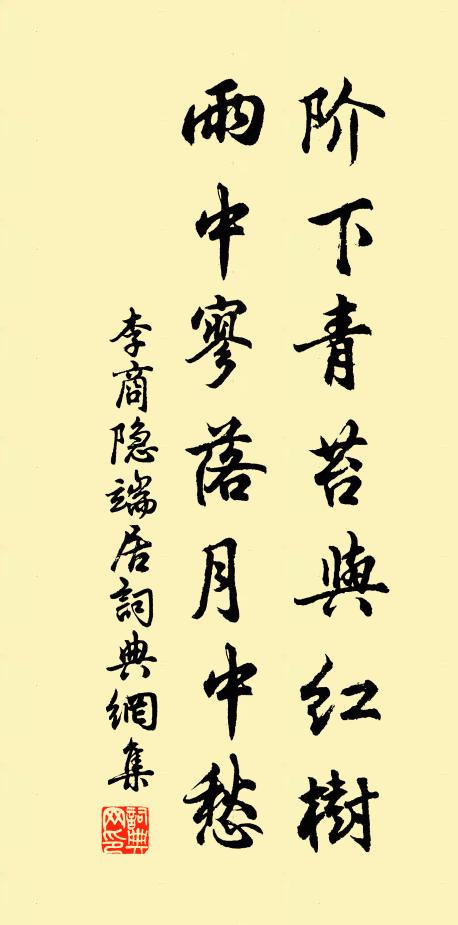 阶下青苔與红樹
雨中寥落月中愁
李商隐端居詞典網集
詞典網印